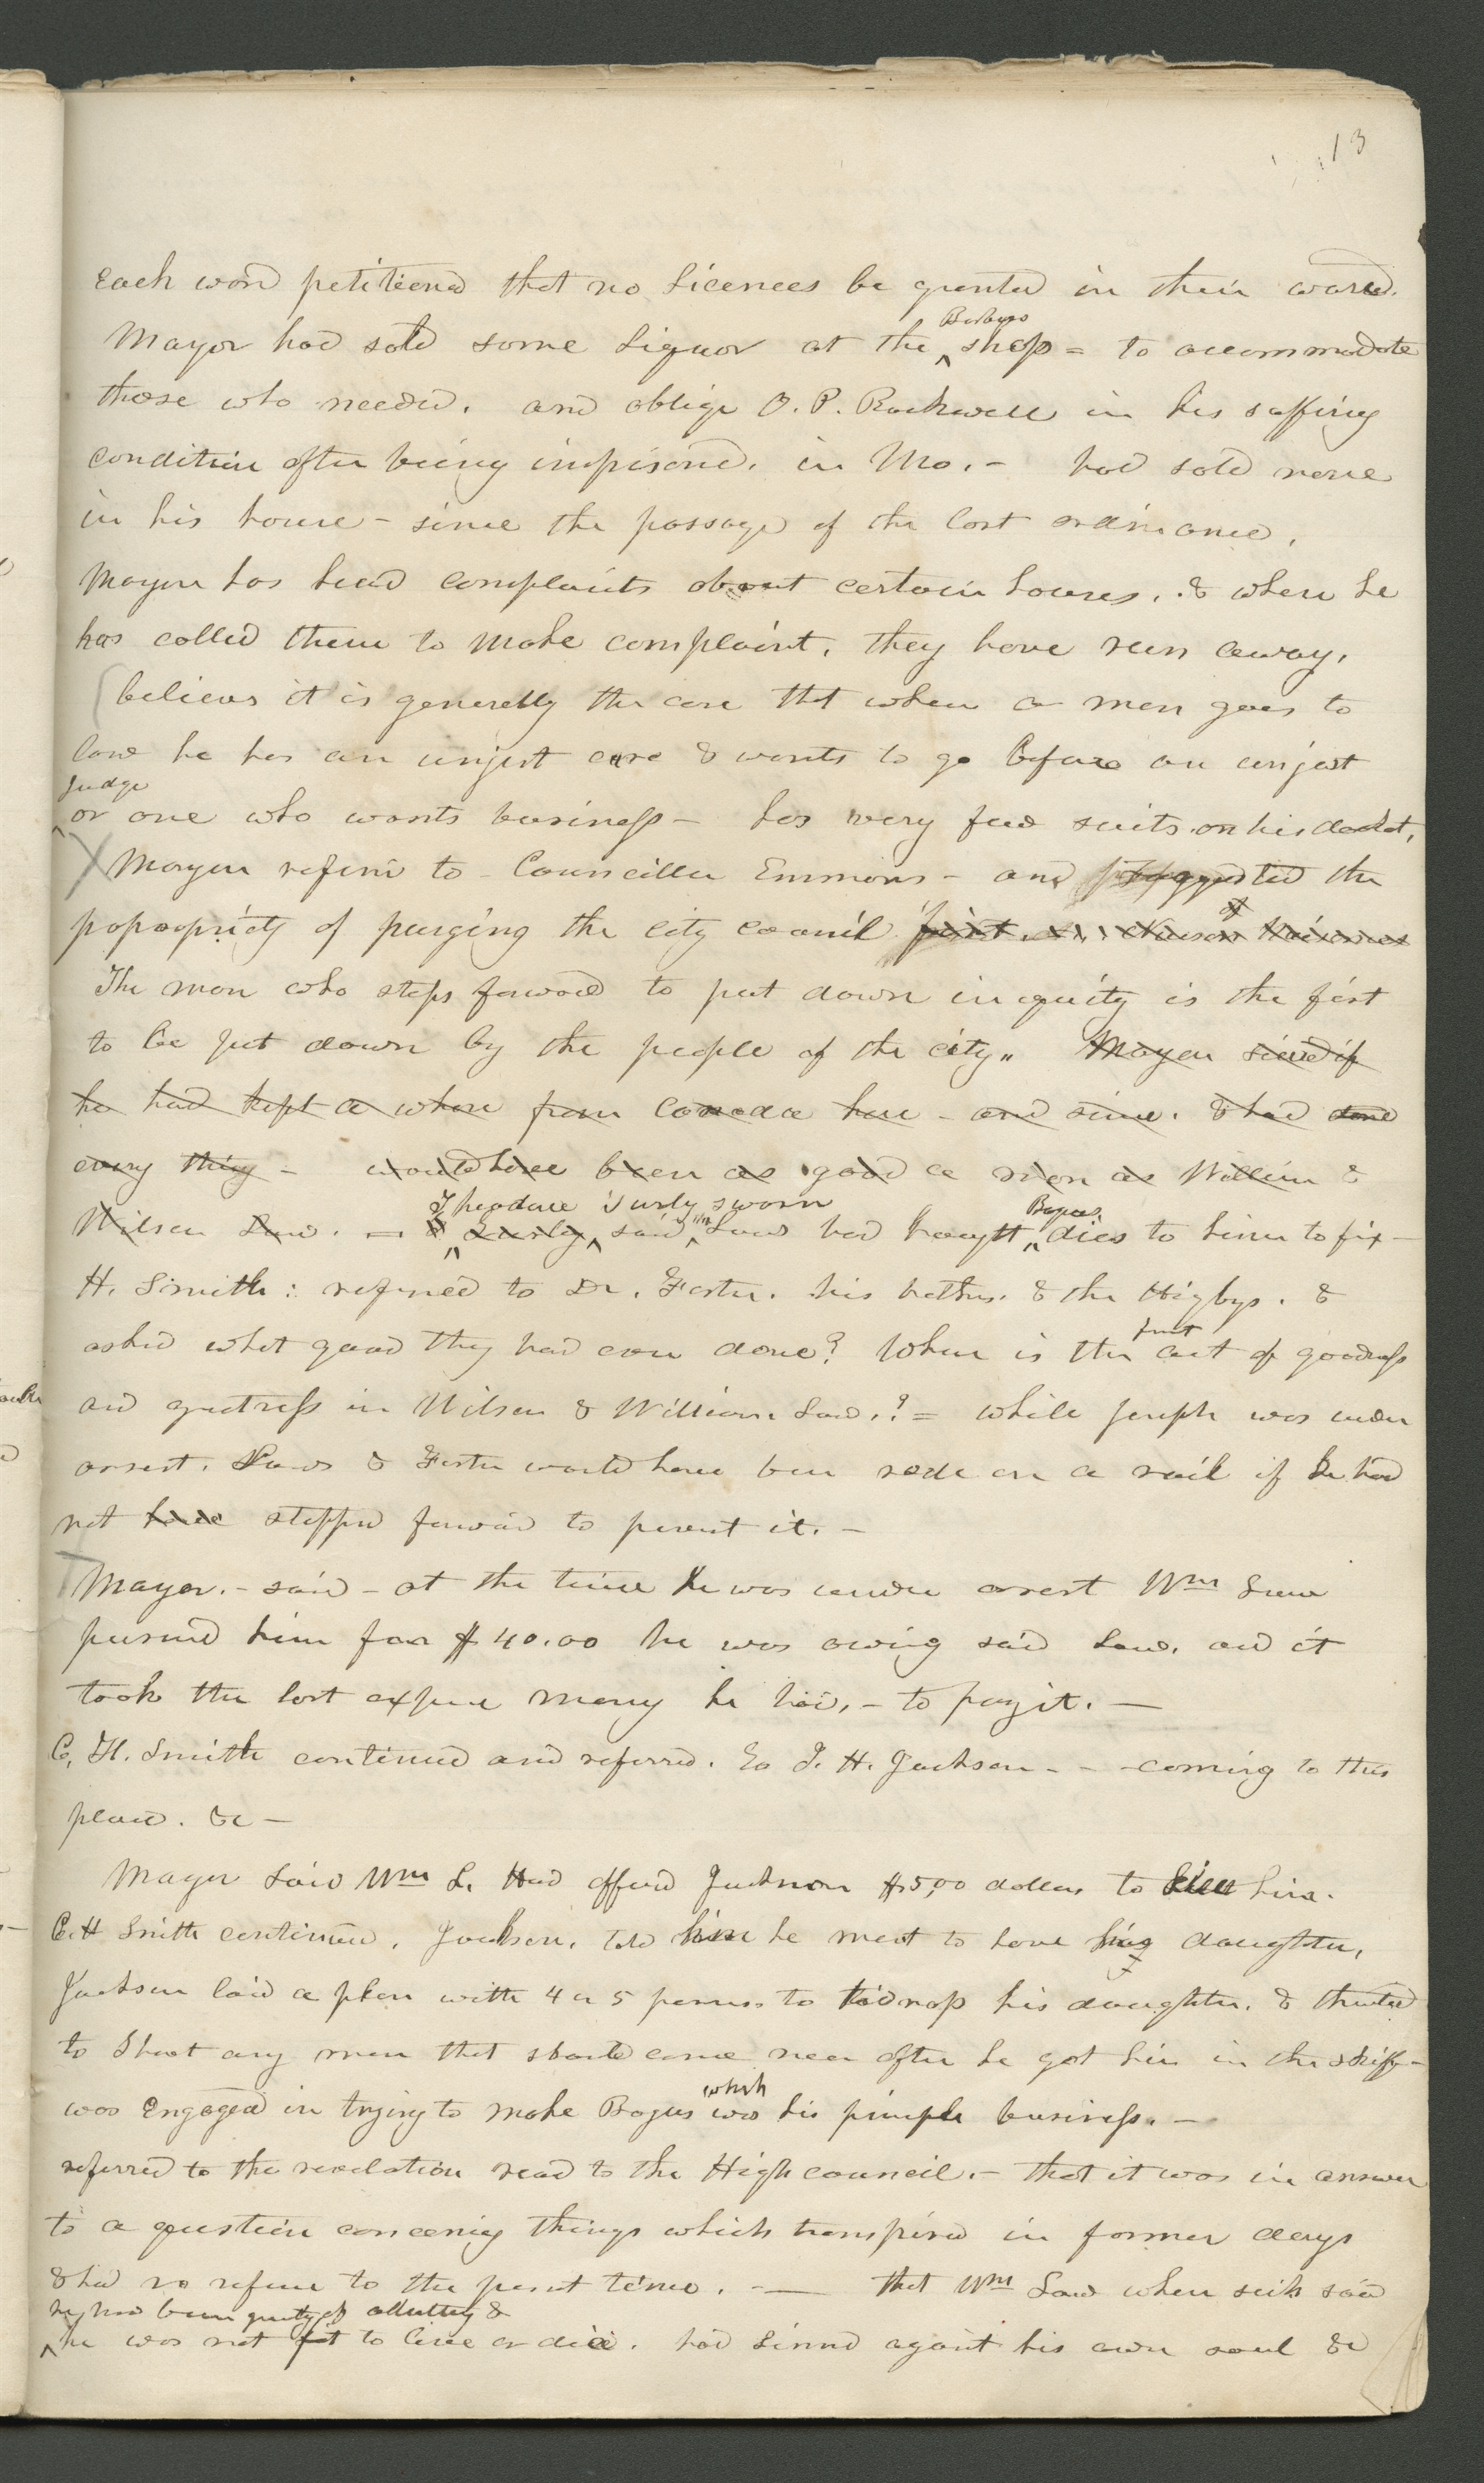 13
Each ward petitiend that no Licences be grented in their ward.
Barbers
Mayor had sold some Liquor at the ^ shop = to accommodate
those who needed. and oblige O. P. Rockwell in his suffring
condition after being impisond. in Mo. - had sold none
in his house - since the passage of the last ordinance.
Mayor has head complaints about certain houses. & when he
has called them to make complaint. they have run away.
believes it is generally the case that when a man goes to
law he has an unjust case & wants to go before an unjust
Judge
^ or one who wants business - has very few suits on his docket.
Mayor referd to - Councillor Emmons - and suggested the
popropriety of purging the city council first. of
The man who steps forward to put down iniquity is the first
to be put down by the people of the city. Mayor said if
he had kept a whore from Canada here - and since. & had done
every thing - would have been as good a man as William &
Theodore Turly sworn Wm Bogus
Wilson Law. = & ^ Turley ^ said ^ Law had brought ^ dies to him to fix -
H. Smith : refered to Dr. Foster. his brother. & the Higbys. &
fruit
asked what good they had ever done? Where is the art of goodness
and greatness in Wilson & William Law.? = while Joseph was under
arrest. Laws & Foster would have been rode on a rail if he had
not have steppd forward to prevent it. -
Mayor. - said - at the time he was under arrest Wm Law
pursued him for $40.00 he was owing said Law. and it
took the last expense money he had. - to pay it. -
C. H. Smith continued and referred. to J. H. Jackson - - coming to this
place. &c -
Mayor said Wm L. Had offerd Jackson $5,00 dollars to kill him.
C. H Smith continued. Jackson. told him he meant to have his daughter.
Jackson laid a plan with 4 or 5 persons to kidnap his daughter. & threatend
to shoot any man that should come near after he got her in the skiff -
which
was Engaged in trying to make Bogus was his principle business. -
referred to the revelation read to the High council. - that it was in answer
to a question concerning things which transpired in former days
& had no refrence to the present time. - that Wm Law when sick said
he had been guilty of adultery &
^ he was not fit to live or die. had sinned against his own soul &c